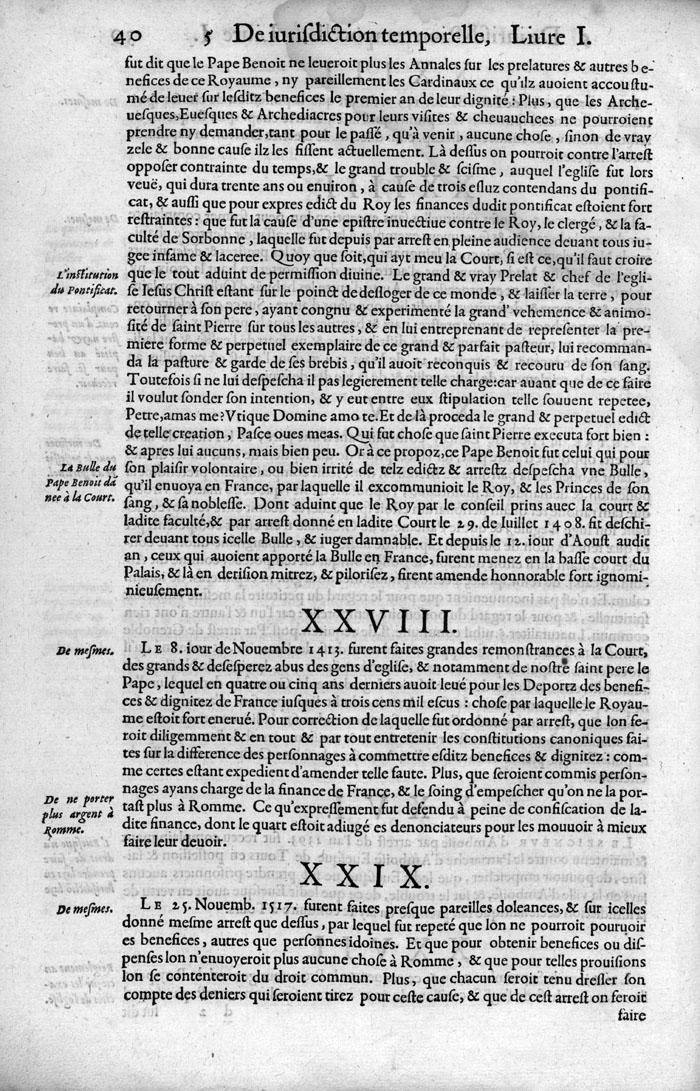 40 5 De iurisdiction temporelle, Liure I.
fut dit que le Pape Benoit ne leueroit plus les Annales sur les prelatures & autres be-
nefices de ce Royaume, ny pareillement les Cardinaux ce qu'ilz auoient accoustu-
mé de leuer sur lesditz benefices le premier an de leur dignité : Plus, que les Arche-
uesques, Euesques & Archediacres pour leurs visites & cheuauchees ne pourroient
prendre ny demander, tant pour le passé, qu'à venir, aucune chose, sinon de vray
zele & bonne cause ilz les fissent actuellement. Là dessus on pourroit contre l'arrest
opposer contrainte du temps, & le grand trouble & scisme, auquel l'eglise fut lors
veuë, qui dura trente ans ou enuiron, à cause de trois esluz contendans du pontifi-
cat, & aussi que pour expres edict du Roy les finances dudit pontificat estoient fort
restraintes : que fut la cause d'une epistre inuectiue contre le Roy, le clergé, & la fa-
culté de Sorbonne, laquelle fut depuis par arrest en pleine audience deuant tous iu-
gee infame & laceree. Quoy que soit, qui ayt meu la Court, si est ce, qu'il faut croire
L'institution
du Pontificat.
que le tout aduint de permission diuine. Le grand & vray Prelat & chef de l'egli-
se Iesus Christ estant sur le poinct de desloger de ce monde, & laisser la terre, pour
retourner à son pere, ayant congnu & experimenté la grand' vehemence & animo-
sité de saint Pierre sur tous les autres, & en lui entreprenant de representer la pre-
miere forme & perpetuel exemplaire de ce grand & parfait pasteur, lui recomman-
da la pasture & garde de ses brebis, qu'il auoit reconquis & recouru de son sang.
Toutefois si ne lui despescha il pas legierement telle charge: car auant que de ce faire
il voulut sonder son intention, & y eut entre eux stipulation telle souuent repetee,
Petre, amas me? Vtique Domine amo te. Et de là proceda le grand & perpetuel edict
de telle creation, Pasce oues meas. Qui fut chose que saint Pierre executa fort bien :
& apres lui aucuns, mais bien peu. Or à ce propoz, ce Pape Benoit fut celui qui pour
La Bulle du
Pape Benoit dã
nee à la Court.
son plaisir volontaire, ou bien irrité de telz edictz & arrestz despescha vne Bulle,
qu'il enuoya en France, par laquelle il excommunioit le Roy, & les Princes de son
sang, & sa noblesse. Dont aduint que le Roy par le conseil prins auec la court &
ladite faculté, & par arrest donné en ladite Court le 29. de Iuillet 1408. fit deschi-
rer deuant tous icelle Bulle, & iuger damnable. Et depuis le 12. iour d'Aoust audit
an, ceux qui auoient apporté la Bulle en France, furent menez en la basse court du
Palais, & là en derision mitrez, & pilorisez, firent amende honnorable fort ignomi-
nieusement.
XXVIII.
De mesmes.
LE 8. iour de Nouembre 1413. furent faites grandes remonstrances à la Court,
des grands & desesperez abus des gens d'eglise, & notamment de nostre saint pere le
Pape, lequel en quatre ou cinq ans derniers auoit leué pour les Deportz des benefi-
ces & dignitez de France iusques à trois cens mil escus : chose par laquelle le Royau-
me estoit fort enerué. Pour correction de laquelle fut ordonné par arrest, que lon se-
roit diligemment & en tout & par tout entretenir les constitutions canoniques fai-
tes sur la difference des personnages à commettre esditz benefices & dignitez : com-
me certes estant expedient d'amender telle faute. Plus, que seroient commis person-
De ne porter
plus argent à
Romme.
nages ayans charge de la finance de France, & le soing d'empescher qu'on ne la por-
tast plus à Romme. Ce qu'expressement fut defendu à peine de confiscation de la-
dite finance, dont le quart estoit adiugé es denonciateurs pour les mouuoir à mieux
faire leur deuoir.
XXIX.
De mesmes.
LE 25. Nouemb. 1517. furent faites presque pareilles doleances, & sur icelles
donné mesme arrest que dessus, par lequel fut repeté que lon ne pourroit pouruoir
es benefices, autres que personnes idoines. Et que pour obtenir benefices ou dis-
penses lon n'enuoyeroit plus aucune chose à Romme, & que pour telles prouisions
lon se contenteroit du droit commun. Plus, que chacun seroit tenu dresser son
compte des deniers qui seroient tirez pour ceste cause, & que de cest arrest on feroit
faire